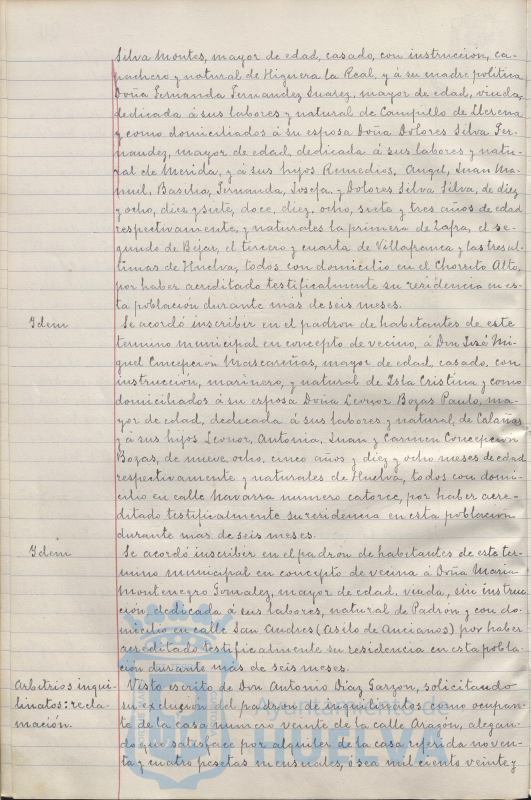 Silva Montes, mayor de edad, casado, con instrucción, ca-
pachero y natural de Higuera la Real, y á su madre politica
Doña Fernanda Fernandez Suarez, mayor de edad, viuda,
dedicada á sus labores y natural de Campillo de Llerena
y como domiciliados á su esposa Doña Dolores Silva Fer-
nandez, mayor de edad, dedicada á sus labores y natu-
ral de Mérida, y á sus hijos Remedios, Angel, Juan Ma-
nuel, Basilia, Fernanda, Josefa y Dolores Silva Silva, de diez
y ocho, diez y siete, doce, diez, ocho, siete y tres años de edad
respectivamente, y naturales la primera de Zafra, el se-
gundo de Béjar, el tercero y cuarta de Villafranca y las tres ul-
timas de Huelva, todos con domicilio en el Chorrito Alto,
por haber acreditado testificalmente su residencia en es-
ta población durante más de seis meses.
Idem
Se acordó inscribir en el padron de habitantes de este
termino municipal en concepto de vecino, á Don José Mi-
guel Concepción Mascareñas, mayor de edad, casado, con
instrucción, marinero, y natural de Isla Cristina y como
domiciliados á su esposa Doña Leonor Bozas Paulo, ma-
yor de edad, dedicada á sus labores y natural, de Calañas
y á sus hijos Leonor, Antonia, Juan y Carmen Concepcion
Bozas, de nueve, ocho, cinco años y diez y ocho meses de edad
respectivamente y naturales de Huelva, todos con domi-
cilio en calle Navarra numero catorce, por haber acre-
ditado testificalmente su residencia en esta poblacion
durante mas de seis meses.
Idem
Se acordó inscribir en el padrón de habitantes de este ter-
mino municipal en concepto de vecina á Doña Maria
Montenegro Gonzalez, mayor de edad, viuda, sin instruc-
ción, dedicada á sus labores, natural de Padrón y con do-
micilio en calle San Andres (Asilo de Ancianos) por haber
acreditado testificalmente su residencia en esta pobla-
ción durante más de seis meses.
Arbitrios inqui-
linatos: recla-
mación.
Visto escrito de Don Antonio Diaz Garzon, solicitando
su exclusion del padron de inquilinatos como ocupan-
te de la casa numero veinte de la calle Aragón, alegan-
do que satisface por alquiler de la casa referida noven-
ta y cuatro pesetas mensuales, ó sea mil ciento veinte y
Ayuntamiento de
HUELVA